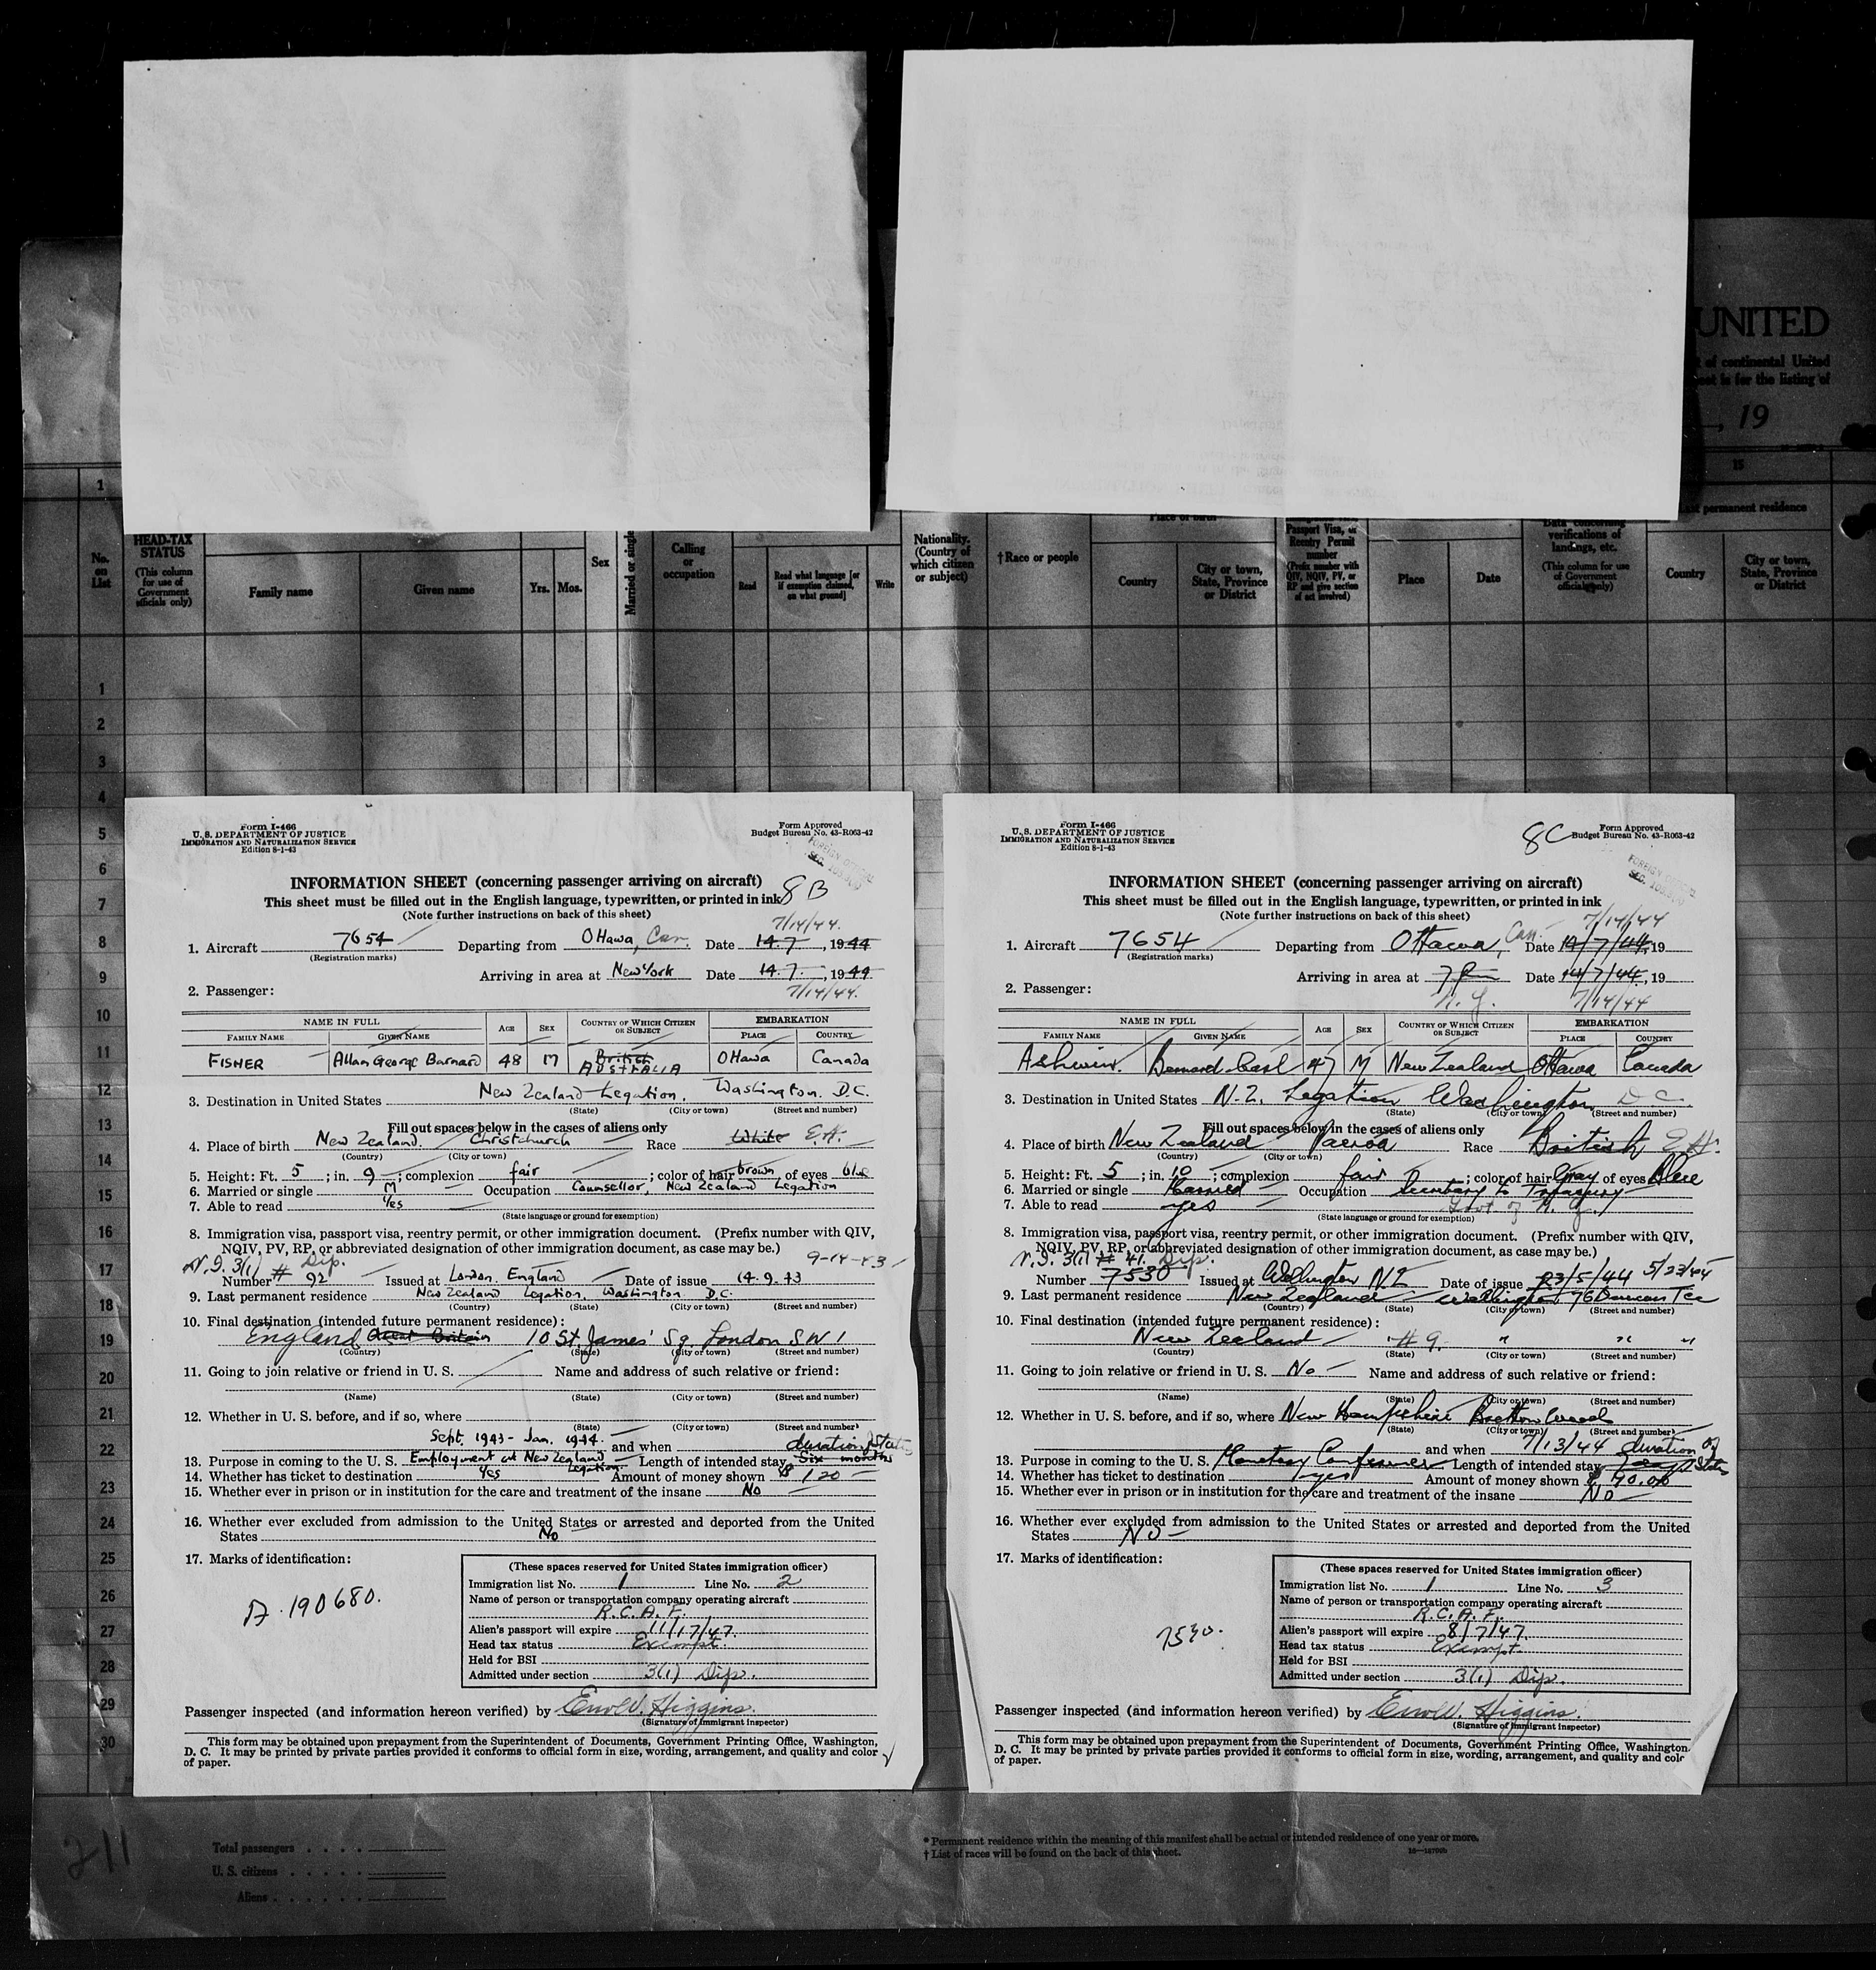 UNITED
of continental United
sheet is for the listing of
, 19
15
1
No. on List
HEAD-TAX STATUS
(This column for use of Government officials only)
Family name
Given name
Yrs.
Mos.
Sex
Married or single
Calling or occupation
Read
Read what language [or if exemption claimed, on what ground]
Write
Nationality. (Country of which citizen or subject)
†Race or people
Place of birth
Country
City or town, State, Province or District
Passport Visa, or Reentry Permit number
(Prefix number with QIV, NQIV, PV, or RP and give section of act involved)
Place
Date
Data concerning verifications of landings, etc.
(This column for use of Government officials only)
Last permanent residence
Country
City or town, State, Province or District
1
2
3
4
5
6
7
8
9
10
11
12
13
14
15
16
17
18
19
20
21
22
23
24
25
26
27
28
29
30
Form I-466
U. S. DEPARTMENT OF JUSTICE
IMMIGRATION AND NATURALIZATION SERVICE
Edition 8-1-43
Form Approved
Budget Bureau No. 43-R063-42
INFORMATION SHEET (concerning passenger arriving on aircraft)
This sheet must be filled out in the English language, typewritten, or printed in ink 8B
(Note further instructions on back of this sheet)
7/14/44.
1. Aircraft 7654 Departing from Ottawa, Can. Date 14.7, 1944
(Registration marks)
Arriving in area at New York Date 14.7, 1944
2. Passenger: 7/14/44.
NAME IN FULL
FAMILY NAME GIVEN NAME AGE SEX COUNTRY OF WHICH CITIZEN OR SUBJECT EMBARKATION PLACE COUNTRY
FISHER Allan George Barnard 48 M British AUSTRALIA Ottawa Canada
3. Destination in United States New Zealand Legation, Washington. D.C.
(State) (City or town) (Street and number)
Fill out spaces below in the cases of aliens only
4. Place of birth New Zealand. Christchurch Race White E.H.
(Country) (City or town)
5. Height: Ft. 5; in. 9; complexion fair; color of hair brown of eyes blue
6. Married or single M Occupation Counsellor, New Zealand Legation
7. Able to read Yes
(State language or ground for exemption)
8. Immigration visa, passport visa, reentry permit, or other immigration document. (Prefix number with QIV,
NQIV, PV, RP, or abbreviated designation of other immigration document, as case may be.)
3(1) Dip. 9-14-43
Number # 92 Issued at London. England Date of issue 14.9.43
9. Last permanent residence New Zealand Legation, Washington D.C.
(Country) (State) (City or town)
10. Final destination (intended future permanent residence):
England Great Britain 10 St. James' Sq. London S.W.1
(Country) (State) (City or town) (Street and number)
11. Going to join relative or friend in U. S. Name and address of such relative or friend:
(Name) (State) (City or town) (Street and number)
12. Whether in U. S. before, and if so, where
(State) (City or town) (Street and number)
Sept. 1943 - Jan. 1944. and when duration status
13. Purpose in coming to the U. S. Employment at New Zealand Legation. Length of intended stay Six months
14. Whether has ticket to destination Yes Amount of money shown $120
15. Whether ever in prison or in institution for the care and treatment of the insane No
16. Whether ever excluded from admission to the United States or arrested and deported from the United
States No
17. Marks of identification:
190680.
(These spaces reserved for United States immigration officer)
Immigration list No. 1 Line No. 2
Name of person or transportation company operating aircraft
R.C.A.F.
Alien's passport will expire 11/17/47.
Head tax status Exempt.
Held for BSI
Admitted under section 3(1) Dip.
Passenger inspected (and information hereon verified) by Errol V. Higgins.
(Signature of immigrant inspector)
This form may be obtained upon prepayment from the Superintendent of Documents, Government Printing Office, Washington,
D. C. It may be printed by private parties provided it conforms to official form in size, wording, arrangement, and quality and color
of paper.
Form I-466
U. S. DEPARTMENT OF JUSTICE
IMMIGRATION AND NATURALIZATION SERVICE
Edition 8-1-43
8C
Form Approved
Budget Bureau No. 43-R063-42
INFORMATION SHEET (concerning passenger arriving on aircraft)
This sheet must be filled out in the English language, typewritten, or printed in ink
(Note further instructions on back of this sheet)
7/14/44
1. Aircraft 7654 Departing from Ottawa, Can. Date 14/7/44, 19
(Registration marks)
Arriving in area at Date 14/7/44, 19
2. Passenger: N.Y. 7/14/44
NAME IN FULL
FAMILY NAME GIVEN NAME AGE SEX COUNTRY OF WHICH CITIZEN OR SUBJECT EMBARKATION PLACE COUNTRY
Ashwin. Bernard Carl 47 M New Zealand Ottawa Canada
3. Destination in United States N.Z. Legation Washington D.C.
(State) (City or town) (Street and number)
Fill out spaces below in the cases of aliens only
4. Place of birth New Zealand Paeroa Race British E.H.
(Country) (City or town)
5. Height: Ft. 5; in. 10; complexion fair; color of hair Gray of eyes Blue
6. Married or single Married Occupation Secretary to Treasury
7. Able to read yes Govt of N.Z.
(State language or ground for exemption)
8. Immigration visa, passport visa, reentry permit, or other immigration document. (Prefix number with QIV,
NQIV, PV, RP, or abbreviated designation of other immigration document, as case may be.)
3(1) # 41. Dip.
Number 7530 Issued at Wellington NZ Date of issue 23/5/44 5/23/44
9. Last permanent residence New Zealand Wellington 76 Duncan Tce
(Country) (State) (City or town) (Street and number)
10. Final destination (intended future permanent residence):
New Zealand # 9. " " "
(Country) (State) (City or town) (Street and number)
11. Going to join relative or friend in U. S. No Name and address of such relative or friend:
(Name) (State) (City or town) (Street and number)
12. Whether in U. S. before, and if so, where New Hampshire Bretton Woods
(State) (City or town) (Street and number)
and when 7/13/44 duration of
13. Purpose in coming to the U. S. Monetary Conference Length of intended stay status
14. Whether has ticket to destination yes Amount of money shown $40.00
15. Whether ever in prison or in institution for the care and treatment of the insane No
16. Whether ever excluded from admission to the United States or arrested and deported from the United
States No
17. Marks of identification:
(These spaces reserved for United States immigration officer)
Immigration list No. 1 Line No. 3
Name of person or transportation company operating aircraft
R.C.A.F.
Alien's passport will expire 8/7/47.
Head tax status Exempt
Held for BSI
Admitted under section 3(1) Dip.
7530.
Passenger inspected (and information hereon verified) by Errol V. Higgins.
(Signature of immigrant inspector)
This form may be obtained upon prepayment from the Superintendent of Documents, Government Printing Office, Washington
D. C. It may be printed by private parties provided it conforms to official form in size, wording, arrangement, and quality and color
of paper.
211
Total passengers . . . .
U. S. citizens . . . . .
Aliens . . . . . .
* Permanent residence within the meaning of this manifest shall be actual or intended residence of one year or more.
† List of races will be found on the back of this sheet.